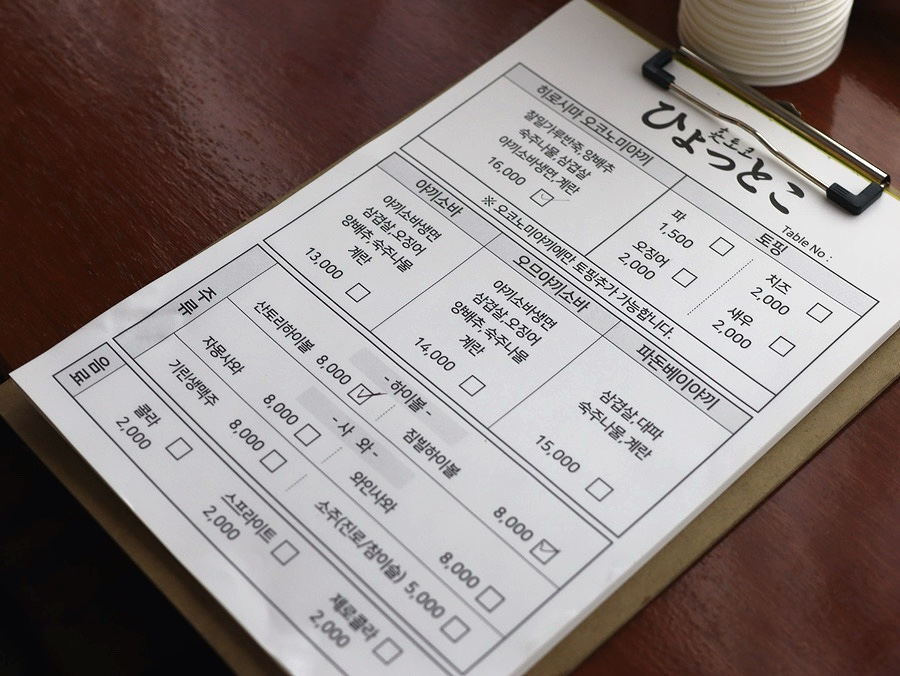 ひょっとこ
효또코
Table No :
히로시마 오코노미야키
찰밀가루반죽, 양배추
숙주나물, 삼겹살
야끼소바생면, 계란
16,000
토핑
파
1,500
치즈
2,000
오징어
2,000
새우
2,000
※ 오코노미야끼에만 토핑추가 가능합니다.
야끼소바
야끼소바생면
삼겹살, 오징어
양배추, 숙주나물
계란
13,000
오므야끼소바
야끼소바생면
삼겹살, 오징어
양배추, 숙주나물
계란
14,000
파돈베이야끼
삼겹살, 대파
숙주나물, 계란
15,000
주류
- 하이볼 -
산토리하이볼 8,000
짐빔하이볼 8,000
- 사 와 -
자몽사와 8,000
와인사와 8,000
기린생맥주 8,000
소주(진로/참이슬) 5,000
음료
콜라
2,000
스프라이트
2,000
제로콜라
2,000